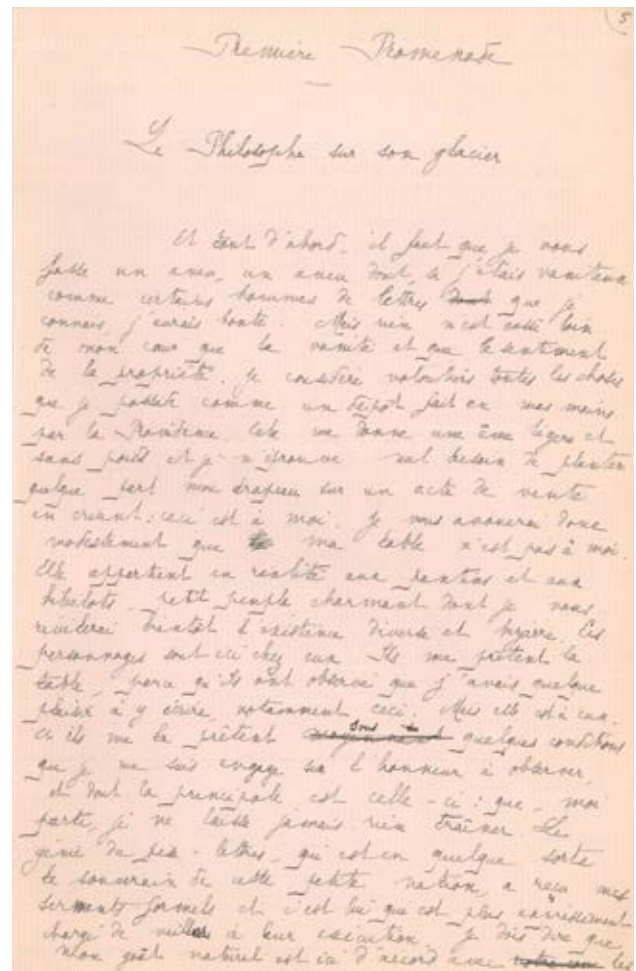 5
Première Promenade
Le Philosophe sur son glacier
Et tout d'abord, il faut que je vous
fasse un aveu, un aveu dont si j'étais vaniteux
comme certains hommes de lettres dont que je
connais j'aurais honte. Mais rien n'est aussi loin
de mon cœur que la vanité et que le sentiment
de la propriété. je considère volontiers toutes les choses
que je possède comme un dépôt fait en mes mains
par la Providence. Cela me donne une âme légère et
sans poids et je n'éprouve nul besoin de planter
quelque part mon drapeau sur un acte de vente
en criant : ceci est à moi. Je vous avouerai donc
modestement que ma table n'est pas à moi.
Elle appartient en réalité aux pantins et aux
bibelots, petit peuple charmant dont je vous
révèlerai bientôt l'existence diverse et bizarre. Ces
personnages sont ici chez eux. Ils me prêtent la
table, parce qu'ils ont observé que j'avais quelque
plaisir à y écrire, notamment ceci. Mais elle est à eux.
Et ils me la prêtent sous quelques conditions
que je me suis engagé sur l'honneur à observer,
et dont la principale est celle-ci : que, moi
parti, je ne laisse jamais rien traîner. Le
génie du pèse-lettres, qui est en quelque sorte
le souverain de cette petite nation, a reçu mes
serments formels et c'est lui qui est plus
chargé de veiller à leur exécution. je dois dire que
mon goût naturel est ici d'accord avec les